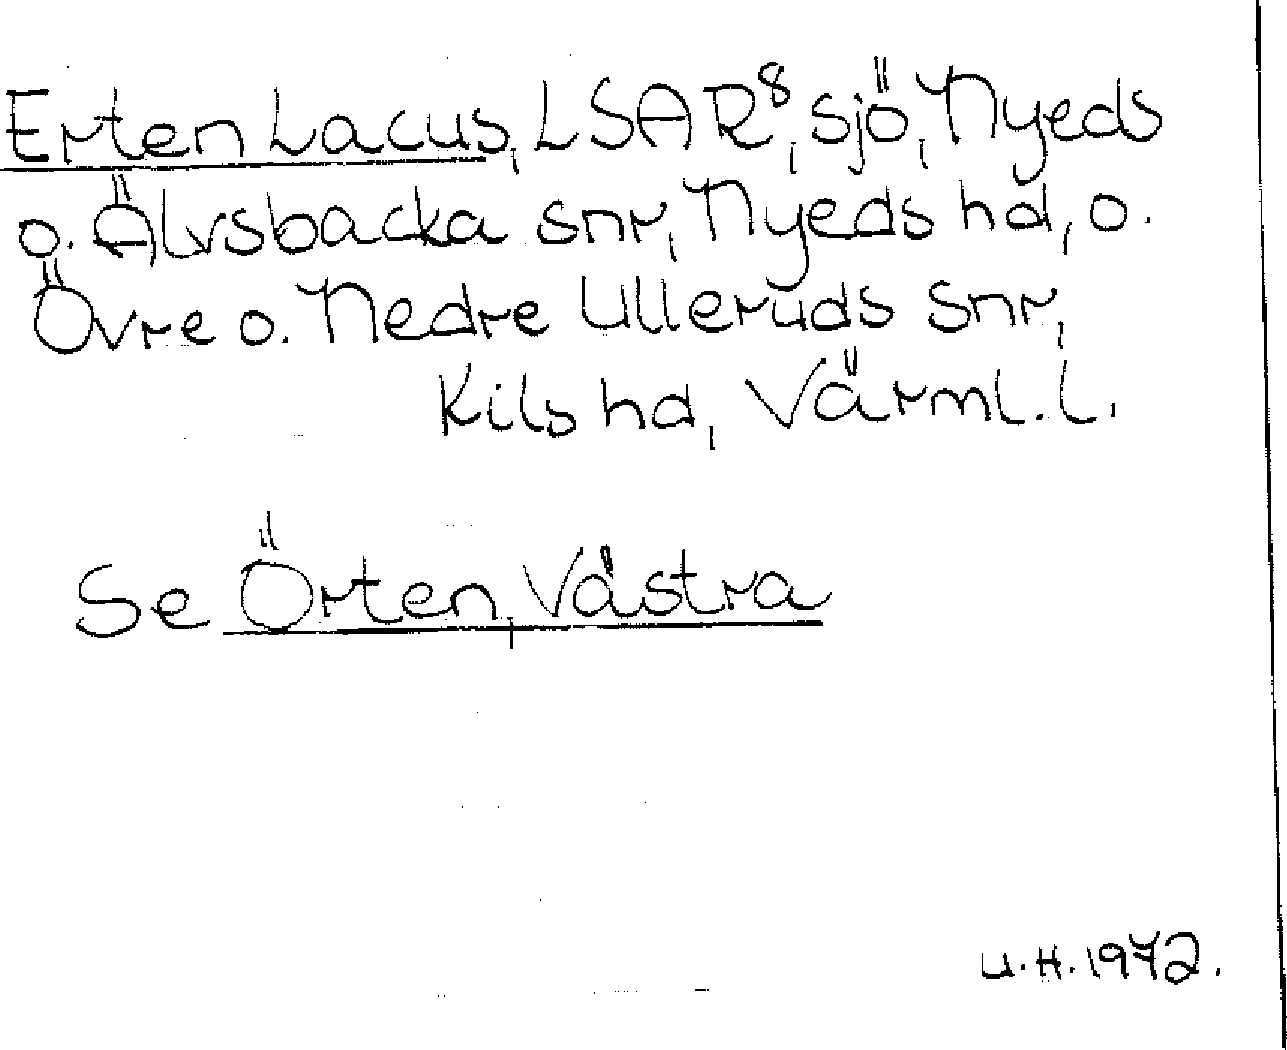 Erten Lacus, LSAR⁸, sjö, Nyeds
o. Älvsbacka snr, Nyeds hd, o.
Övre o. Nedre Ulleruds snr,
Kils hd, Värml. l.
Se Örten, Västra
U.H. 1972.